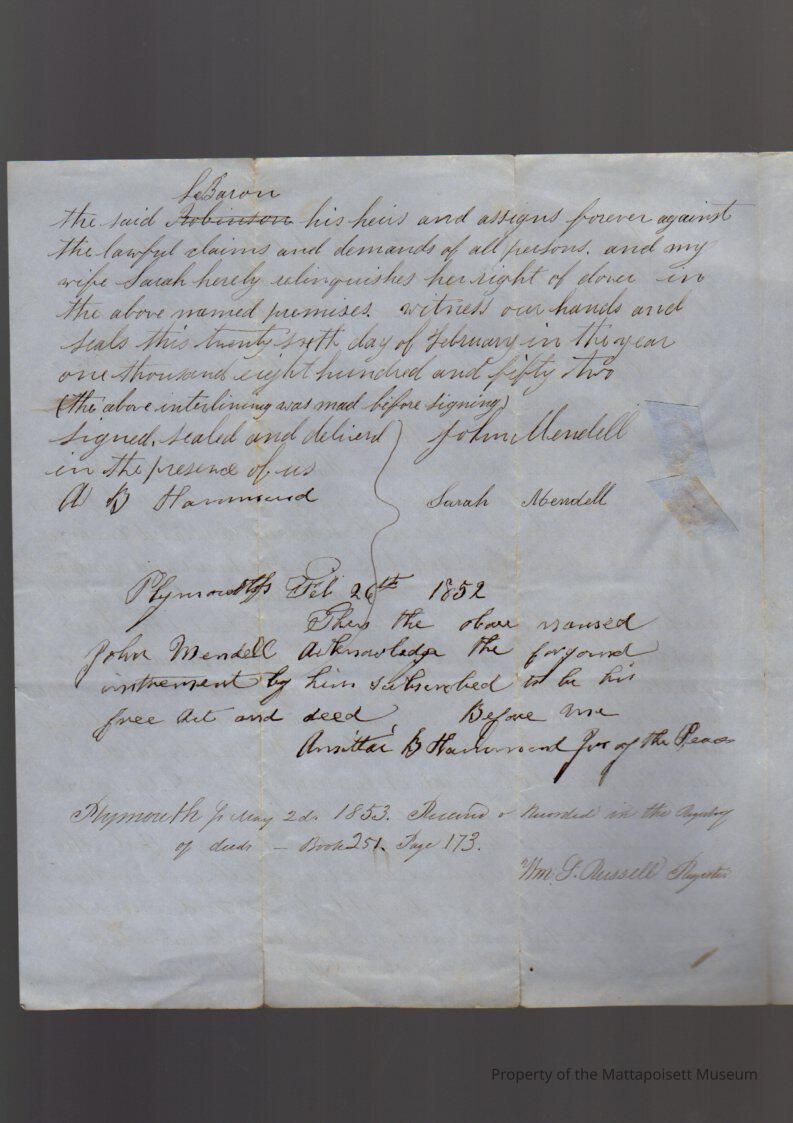 LeBaron
the said Robinson his heirs and assigns forever against
the lawful claims and demands of all persons. and my
wife Sarah hereby relinquishes her right of dover in
the above named premises. witness our hands and
seals this twenty sixth day of February in the year
one thousand eight hundred and fifty two
(the above interlining was mad before signing)
signed, sealed and deliverd
John Mendell
in the presence of us
A B Hammond
Sarah Mendell
Plymouth ss Feb 26th 1852
Then the above named
John Mendell Acknowledge the forgoind
instrement by him subscrobed to be his
free Act and deed Before me
Ansittai B Hammond Jus of the Peace
Plymouth ss May 2d. 1853. Received & Recorded in the Registry
of deeds – Book 251. Page 173.
Wm S. Russell Register
Property of the Mattapoisett Museum